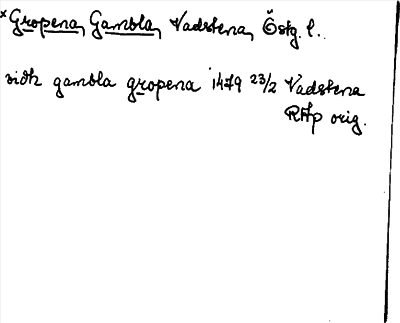 ×Gropena, Gambla, Vadstena, Östg. l.
vidh gambla gropena 1479 23/2 Vadstena
RAp orig.